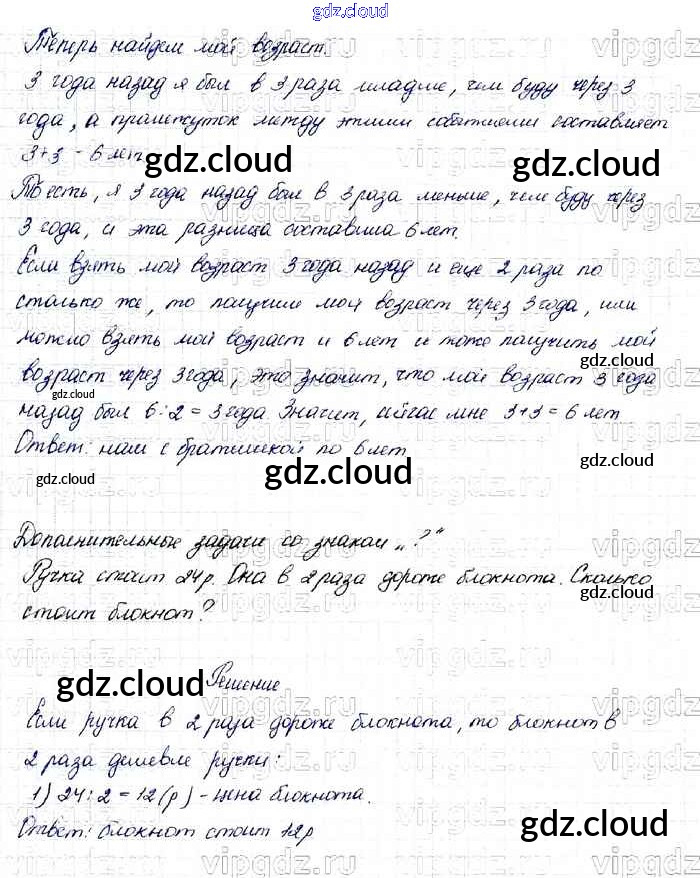 gdz.cloud
Теперь найдем мой возраст.
3 года назад я был в 3 раза младше, чем буду через 3
года, а промежуток между этими событиями составляет
3+3 = 6 лет.
gdz.cloud
gdz.cloud
То есть, я 3 года назад был в 3 раза меньше, чем буду через
3 года, и эта разница составила 6 лет.
Если взять мой возраст 3 года назад и еще 2 раза по
столько же, то получим мой возраст через 3 года, или
можно взять мой возраст и 6 лет и тоже получить мой
gdz.cloud
возраст через 3 года, это значит, что мой возраст 3 года
gdz.cloud
назад был 6:2 = 3 года. Значит, сейчас мне 3+3 = 6 лет
Ответ: нам с братишкой по 6 лет.
gdz.cloud
gdz.cloud
gdz.cloud
Дополнительные задачи со знаком „?"
Ручка стоит 24р. Она в 2 раза дороже блокнота. Сколько
gdz.cloud
стоит блокнот?
Решение
gdz.cloud
gdz.cloud
Если ручка в 2 раза дороже блокнота, то блокнот в
2 раза дешевле ручки:
1) 24:2 = 12 (р) - цена блокнота.
Ответ: блокнот стоит 12р
gdz.cloud